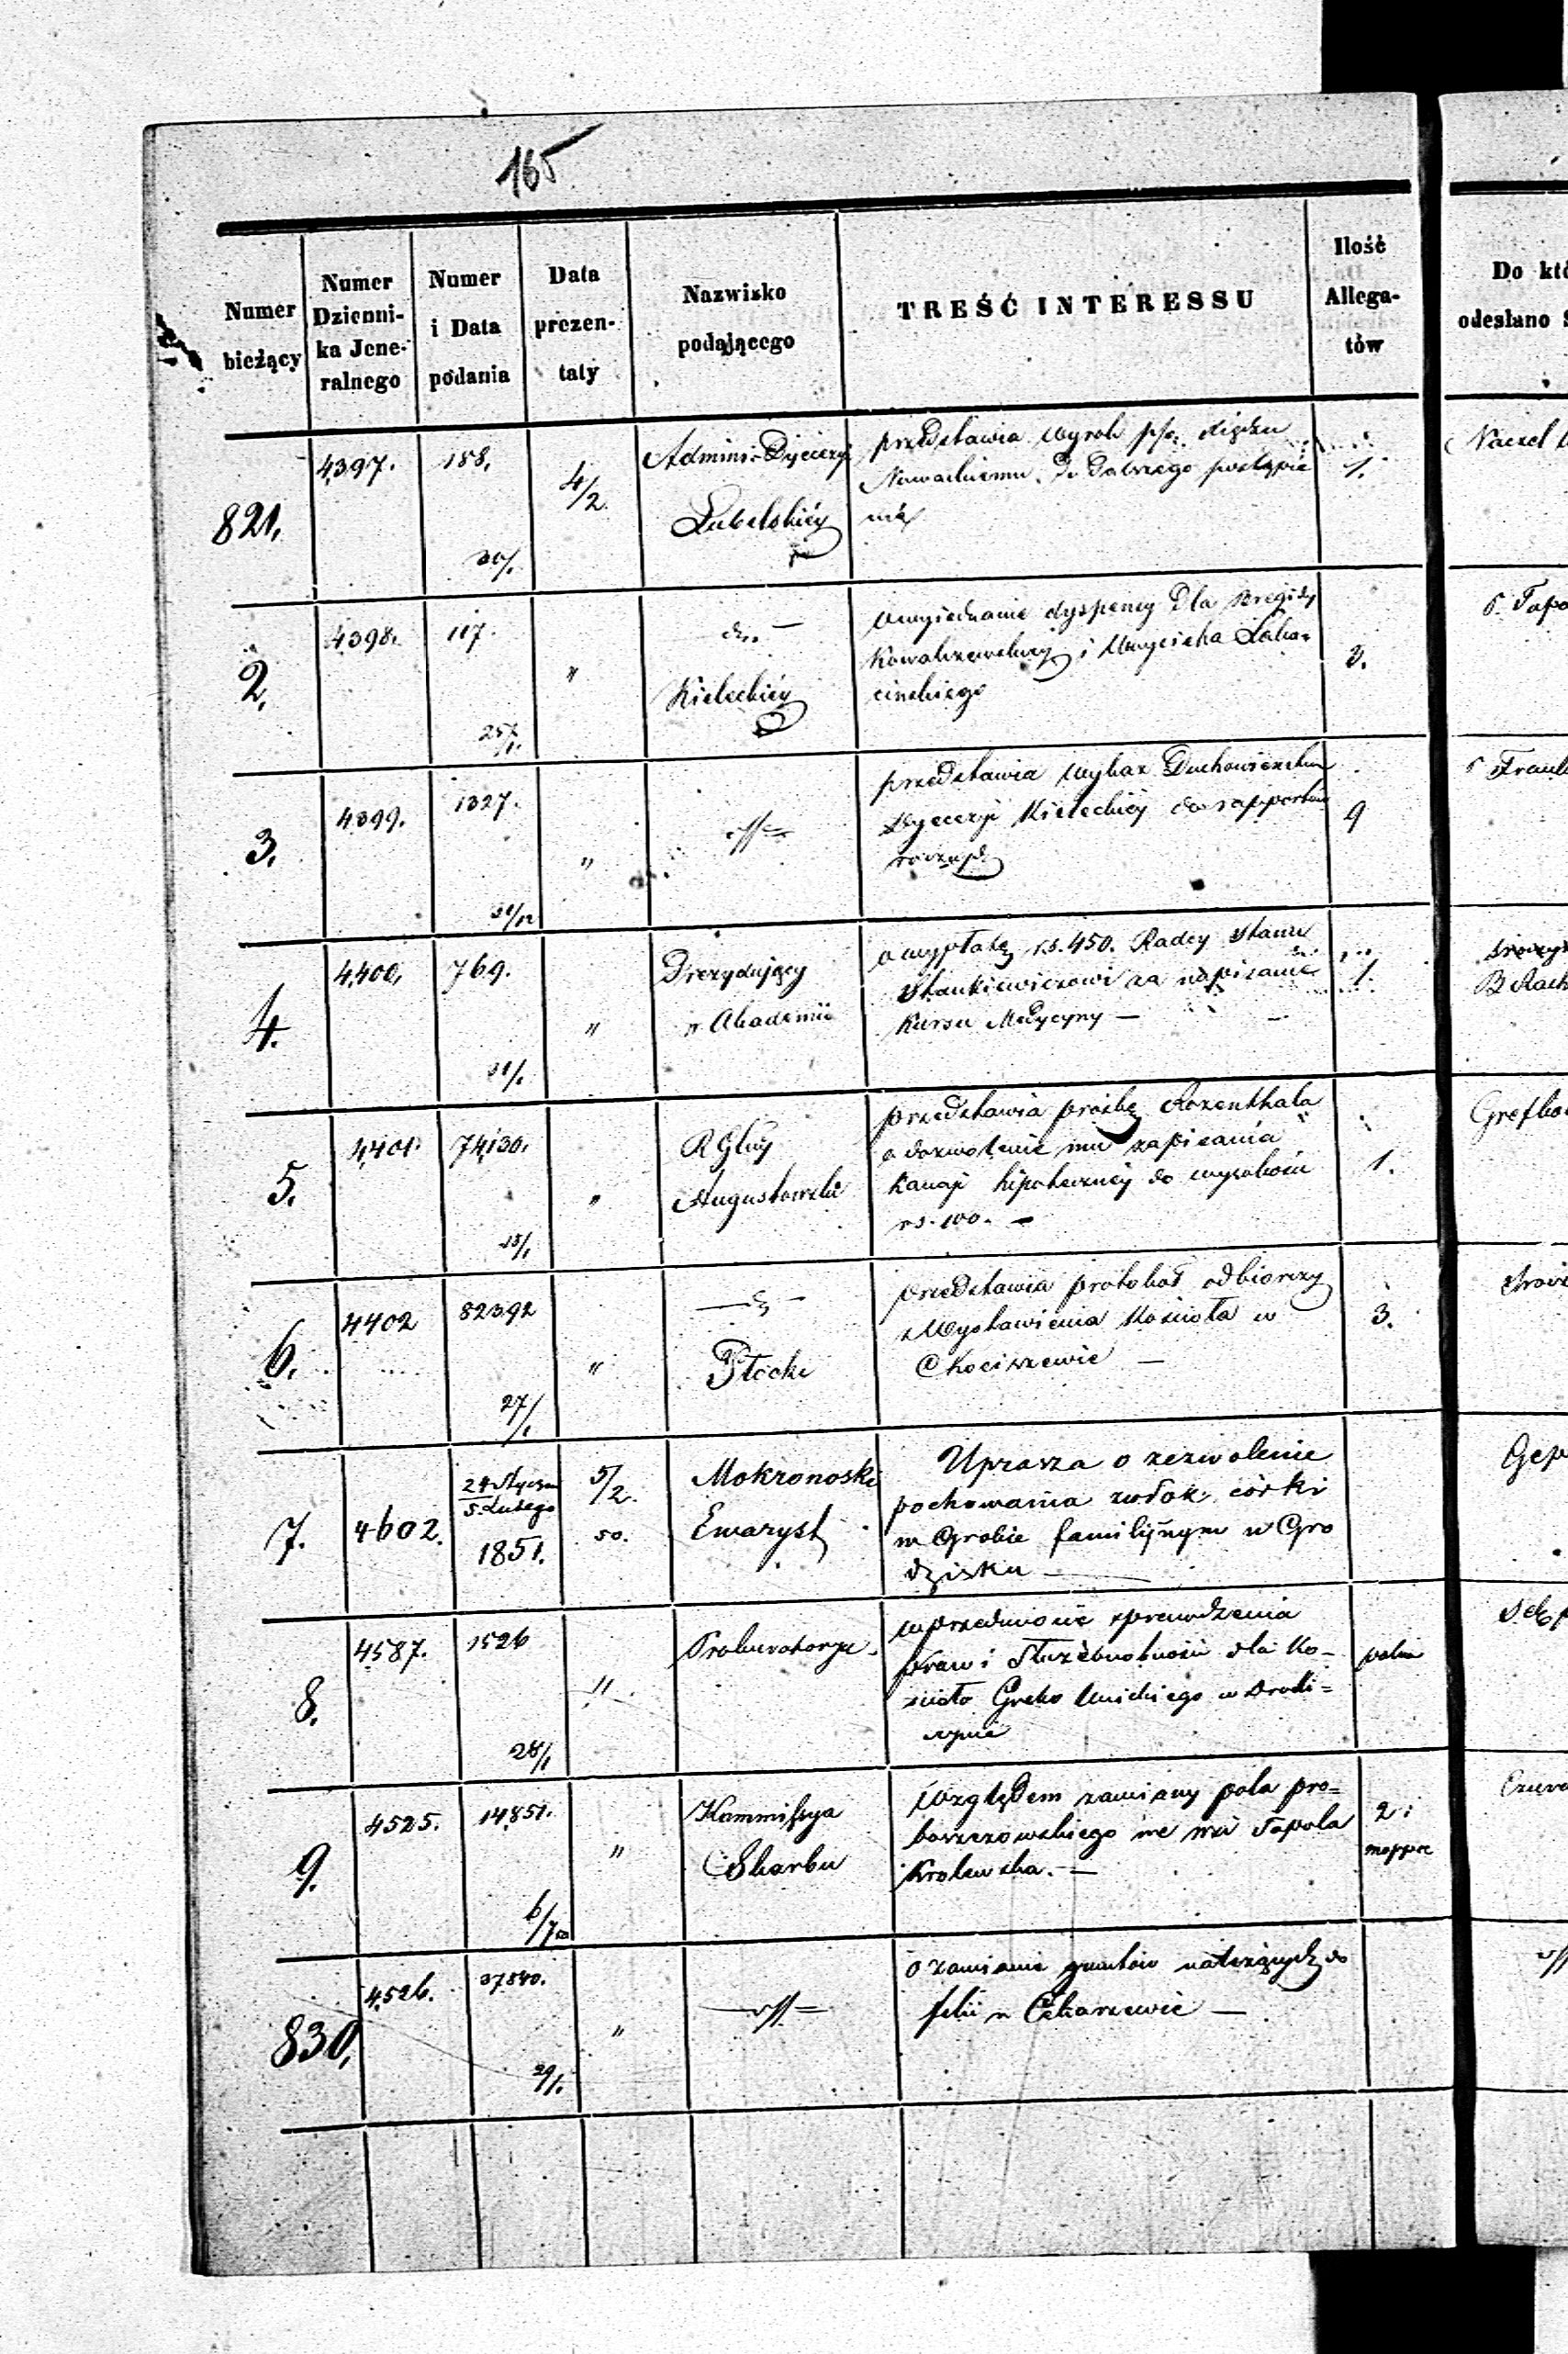 165
Numer bieżący
Numer Dzienni-ka Jene-ralnego
Numer i Data podania
Data prezen-taty
Nazwisko podającego
TREŚĆ INTERESSU
Ilość Allega-tów
Do któ
odesłano S
821.
4397.
188.
30/1.
4/2
Admini. Dyecezyi
Lubelskiéy
przedstawia wyrok p/o. Księdzu
Nowackiemu. do dalszego postąpie
nia
1.
Naczel
2.
4398.
117.
25/1.
"
do. —
Kieleckiéy
o wyiednanie dyspensy dla Brigidy
Kowalczewskiéy i Woyciecha
cinskiego
2.
3.
4399.
1327.
31/12
"
przedstawia wykaz Duchowieństwa
Dyecezji Kieleckiéy do rapportu
9
4.
4400.
769.
31/1.
"
Prezydujący
w Akademii
o wypłatę rs. 450. Radcy Stanu
Stankiewiczowi za napisanie
Kursu Medycyny —
1.
5.
4401.
74130.
"
R Gbny
Augustowski
przedstawia prośbę Rozenthala
o dozwolenie mu zapisania
Kaucji hipoteczney do wysokości
rs. 100. —
1.
6.
4402
82392
27/1
"
Płocki
przedstawia protokół odbiorczy
z Wystawienia Kościoła w
Chociszewie —
3.
7.
4602.
24 Stycznia
5. Lutego
1851.
5/2.
50.
Mokronoski
Ewaryst
Uprasza o zezwolenie
pochowania zwłok córki
w Grobie familijnym w Gro
dzisku —
8.
4587.
1526
28/1
"
Prokuratorya.
w przedmiocie sprawdzenia
praw i służebności dla Ko-
scioła Greko Unickiego w
9.
4525.
14851.
6/7
"
Kommissya
Skarbu
Względem zamiany pola pro=
boszczowskiego we wsi Topola
Krolewska. —
2 i
mappa
830.
4526.
37840.
29/1.
"
o zamianie gruntów należących do
filii w Cekanowie —